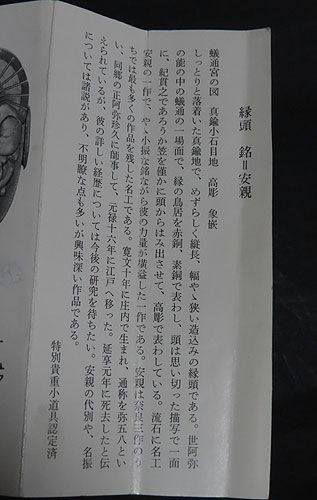 縁頭　銘＝安親
蟻通宮の図　真鍮小石目地　高彫　象嵌
しっとりと落着いた真鍮地で、めずらしく縦長、幅やゝ狭い造込みの縁頭である。世阿弥
の能の中の蟻通の一場面で、縁の鳥居を赤銅、素銅で表わし、頭は思い切った描写で一面
に、紀貫之であろうか笠を僅かに頭からはみ出させて、高彫で表わしている。流石に名工
安親の一作で、やゝ小振な銘ながら彼の力量が横溢した一作である。安親は奈良三作のう
ちでは最も多くの作品を残した名工である。寛文十年に庄内で生まれ、通称を弥五八とい
い、同郷の正阿弥珍久に師事して、元禄十六年に江戸へ移った。延享元年に死去したと伝
えられているが、彼の詳しい経歴については今後の研究を待ちたい。安親の代別や、名振
については諸説があり、不明瞭な点も多いが興味深い作品である。
特別貴重小道具認定済